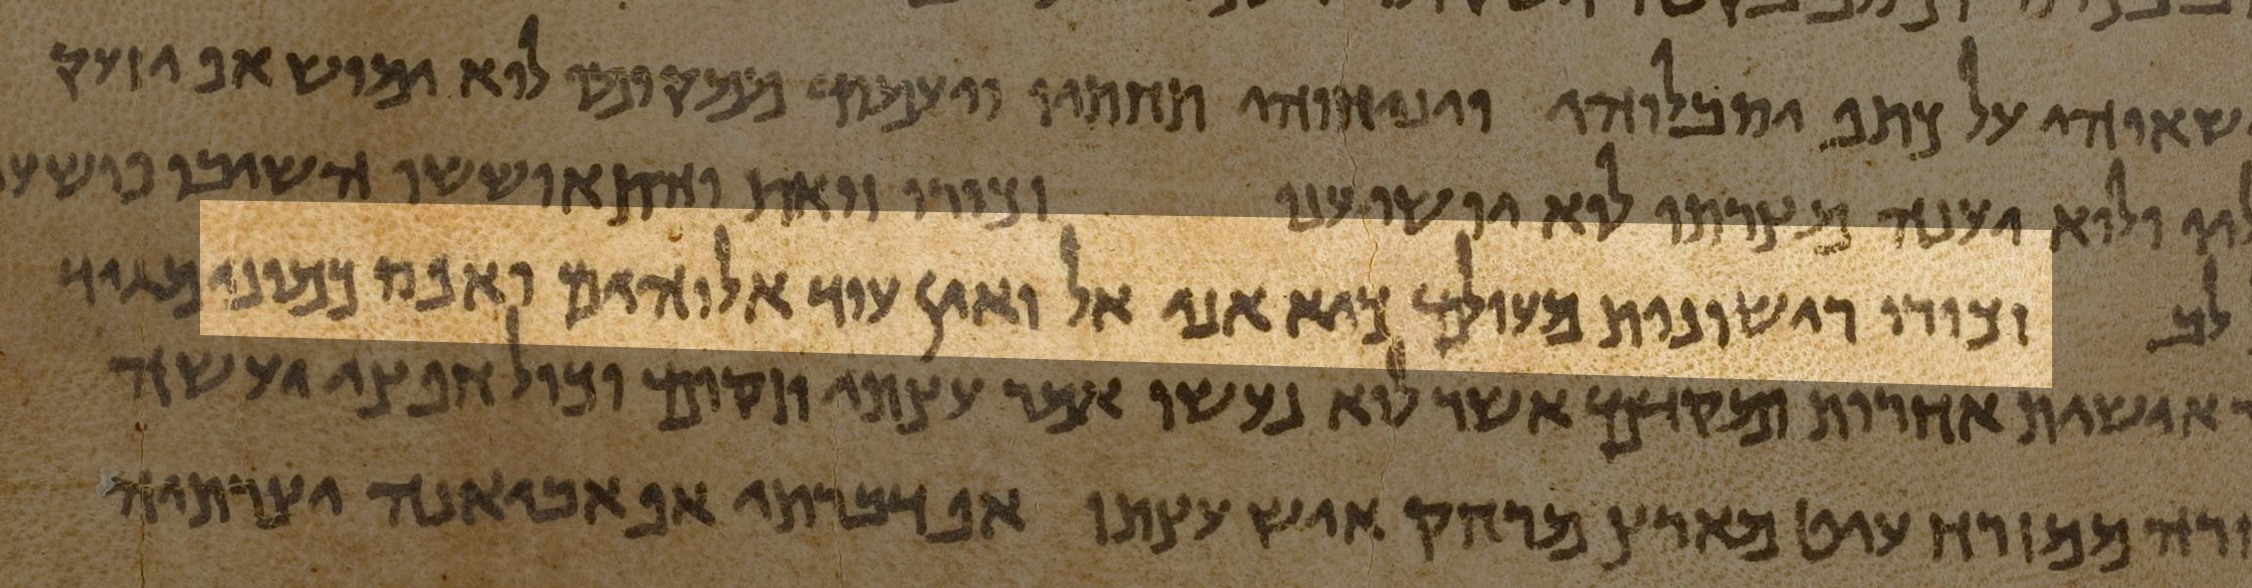 ישאוהו על כתפ ויסבלוהו ויניחוהו תחתיו ויעמוד ממקומו לוא ימוש אפ יזעק
ולוא יענה מצרתו לוא יושיענו זכורו זואת והתאוששו השיבו פושע
לב זכורו רישונות מעולם כיא אני אל ואין עוד אלוהים ואפס כמוני מגיד
אישית אחרית ומקדם אשר לוא נעשו אומר עצתי תקום וכול חפצי יעשה
ורה ממזרח עיט מארץ מרחק איש עצתו אפ דברתי אפ אביאנה יצרתיה